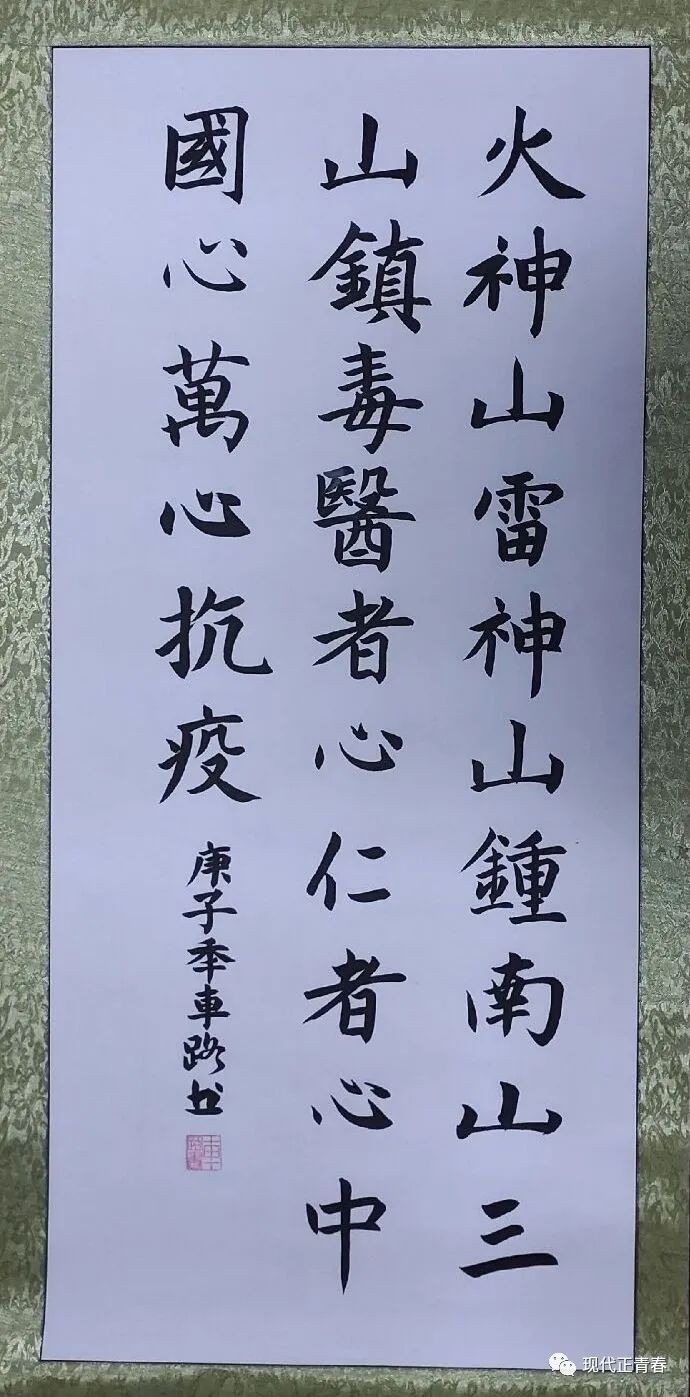 火神山雷神山鍾南山三
山鎮毒醫者心仁者心中
國心萬心抗疫
庚子年車路书
现代正青春